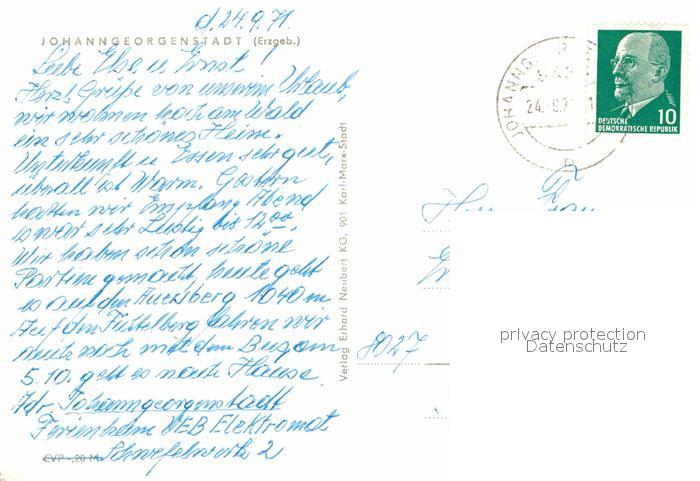 d. 24.9.71.
JOHANNGEORGENSTADT (Erzgeb.)
Liebe Elsa u. Ernst!
Herzl. Grüße von unserem Urlaub,
wir wohnen hoch am Wald
ein sehr schönes Heim.
Unterkunft u Essen sehr gut,
überall ist Warm. Gestern
hatten wir Empfang Abend
es war sehr Lustig bis 12 00.
Wir haben schon schöne
Partien gemacht, heute geht
es auf den Auersberg 1040 m
Auf den Fichtelberg fahren wir
auch noch mit dem
5.10. geht es nach Hause
Adr. Johanngeorgenstadt
Ferienheim VEB Elektromat
Schwefelwerk 2
EVP -,20 M
Verlag Erhard Neubert KG, 901 Karl-Marx-Stadt
24.-9.71
DEUTSCHE 10
DEMOKRATISCHE REPUBLIK
8027
privacy protection
Datenschutz